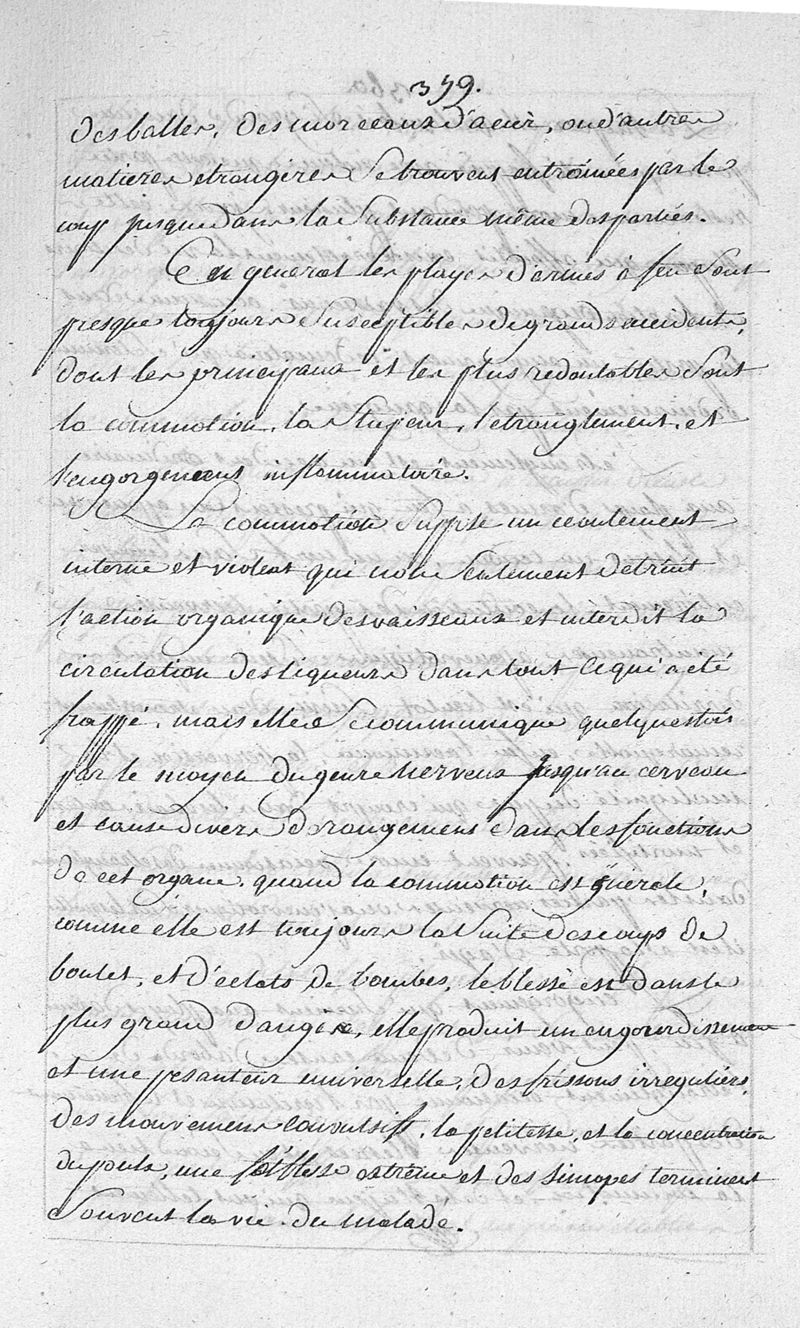 359.
des balles, des morceaux d'acier, ou d'autres
matieres etrangeres se trouvent entrainées par le
coup jusque dans la substance même des parties.
En general les playes d'armes à feu sont
presque toujours susceptibles de grands accidents,
dont les principaux et les plus redoutables sont
la commotion, la stupeur, l'etranglement, et
l'engorgement inflammatoire.
La commotion suppose un ecoulement
interne et violent qui non seulement detruit
l'action organique des vaisseaux et interdit la
circulation des liqueurs dans tout ce qui a eté
frappé, mais elle se communique quelques fois
par le moyen du genre nerveux jusqu'au cerveau
et cause divers derangement dans les fonctions
de cet organe. quand la commotion est generale,
comme elle est toujours la suite des coups de
boulet, et d'eclats de bombes, le blessé est dans le
plus grand danger, elle produit un engourdissement
et une pesanteur universelle, des frissons irreguliers,
des mouvemens convulsifs, la petitesse, et la concentration
du pouls, une foiblesse extrême et des sincopes terminent
souvent la vie du malade.